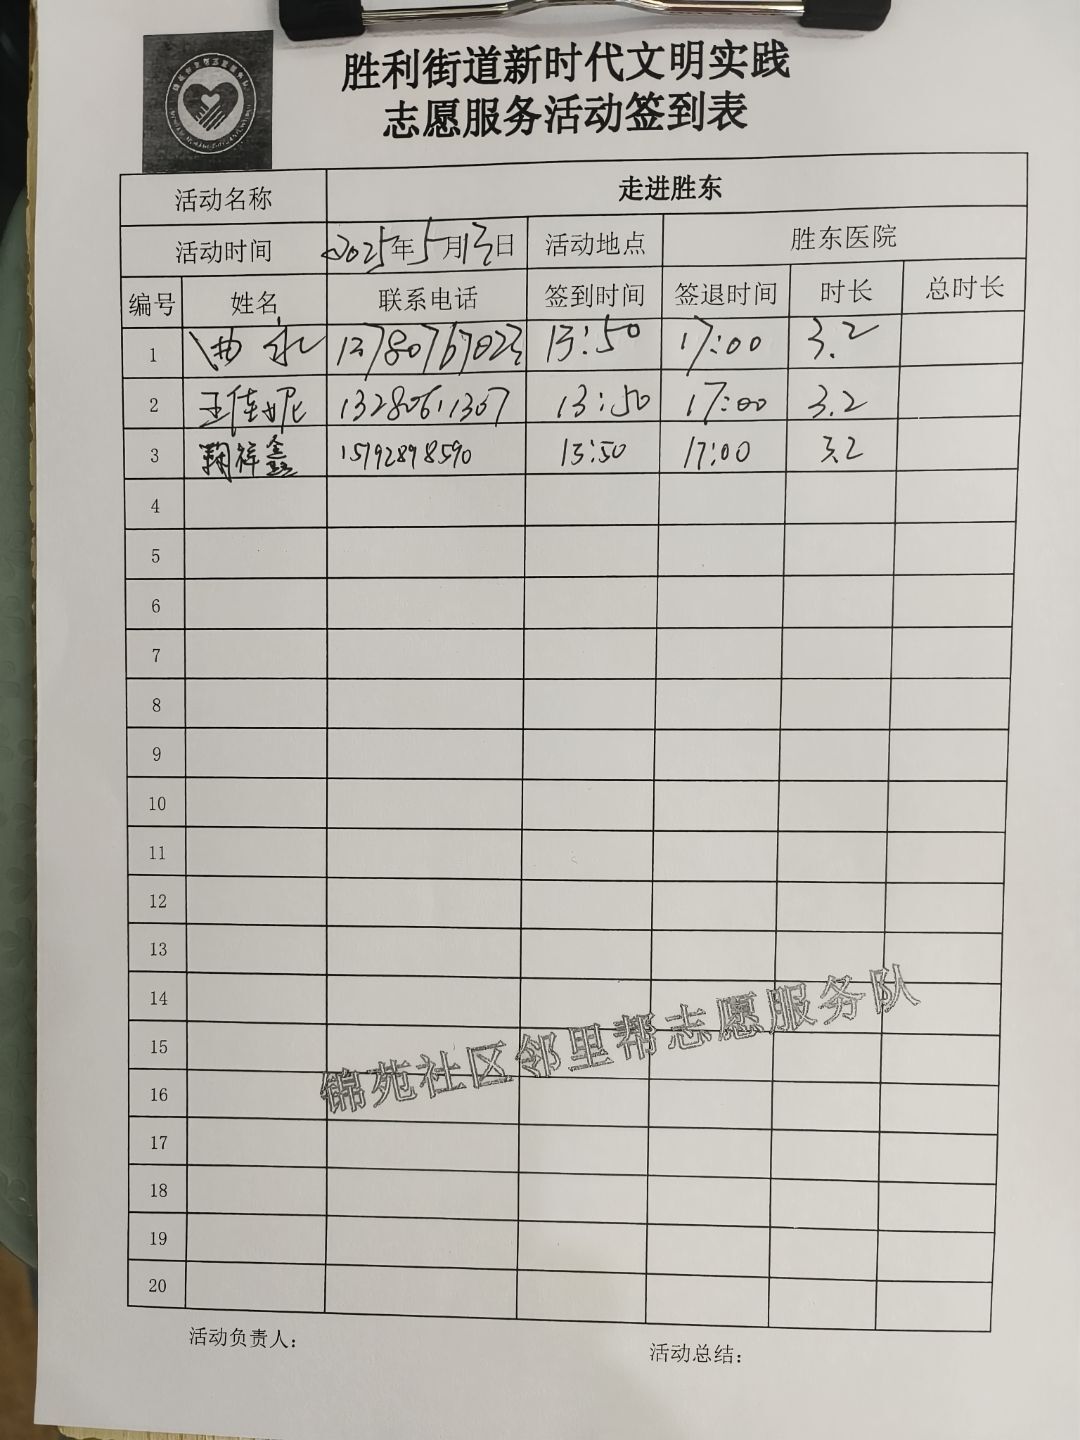 胜利街道新时代文明实践
志愿服务活动签到表
活动名称 走进胜东
活动时间 2025年5月13日 活动地点 胜东医院
编号 姓名 联系电话 签到时间 签退时间 时长 总时长
1 曲永 13780767023 13:50 17:00 3.2
2 王佳妮 13280611307 13:50 17:00 3.2
3 鞠祥鑫 15192898590 13:50 17:00 3.2
4
5
6
7
8
9
10
11
12
13
14
15
16
17
18
19
20
锦苑社区邻里帮志愿服务队
活动负责人： 活动总结：